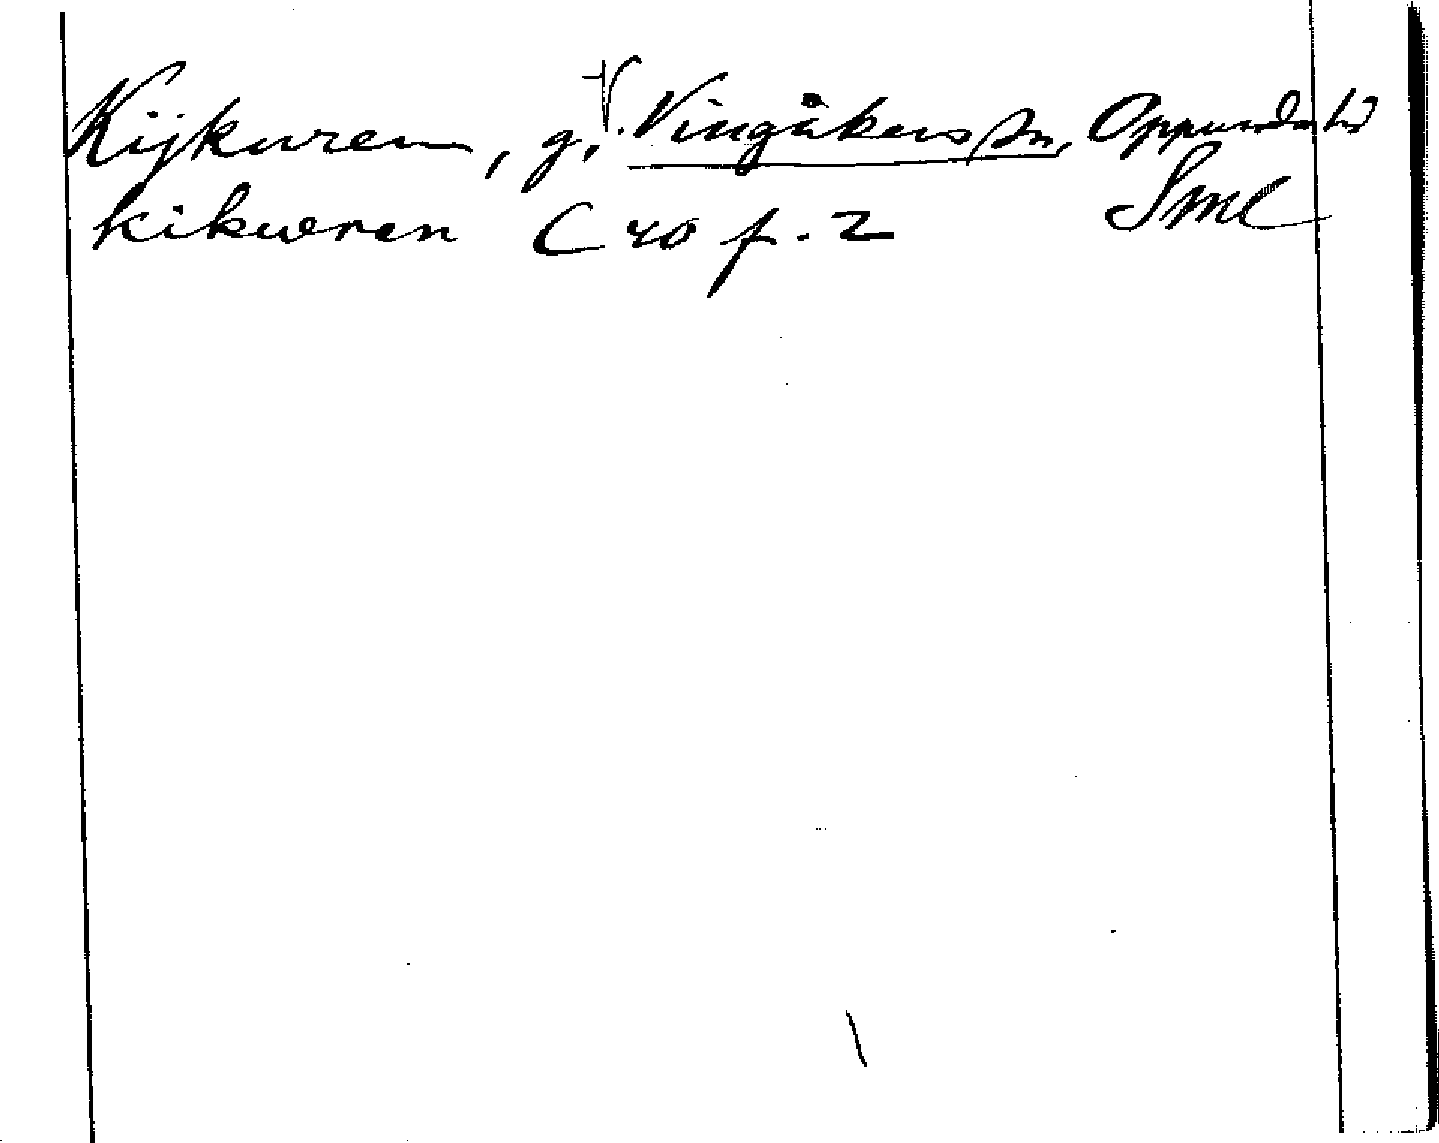 Kijkuren, g, V. Vingåkers sn, Oppunda hd
kikweren C 40 f. 2 Sml